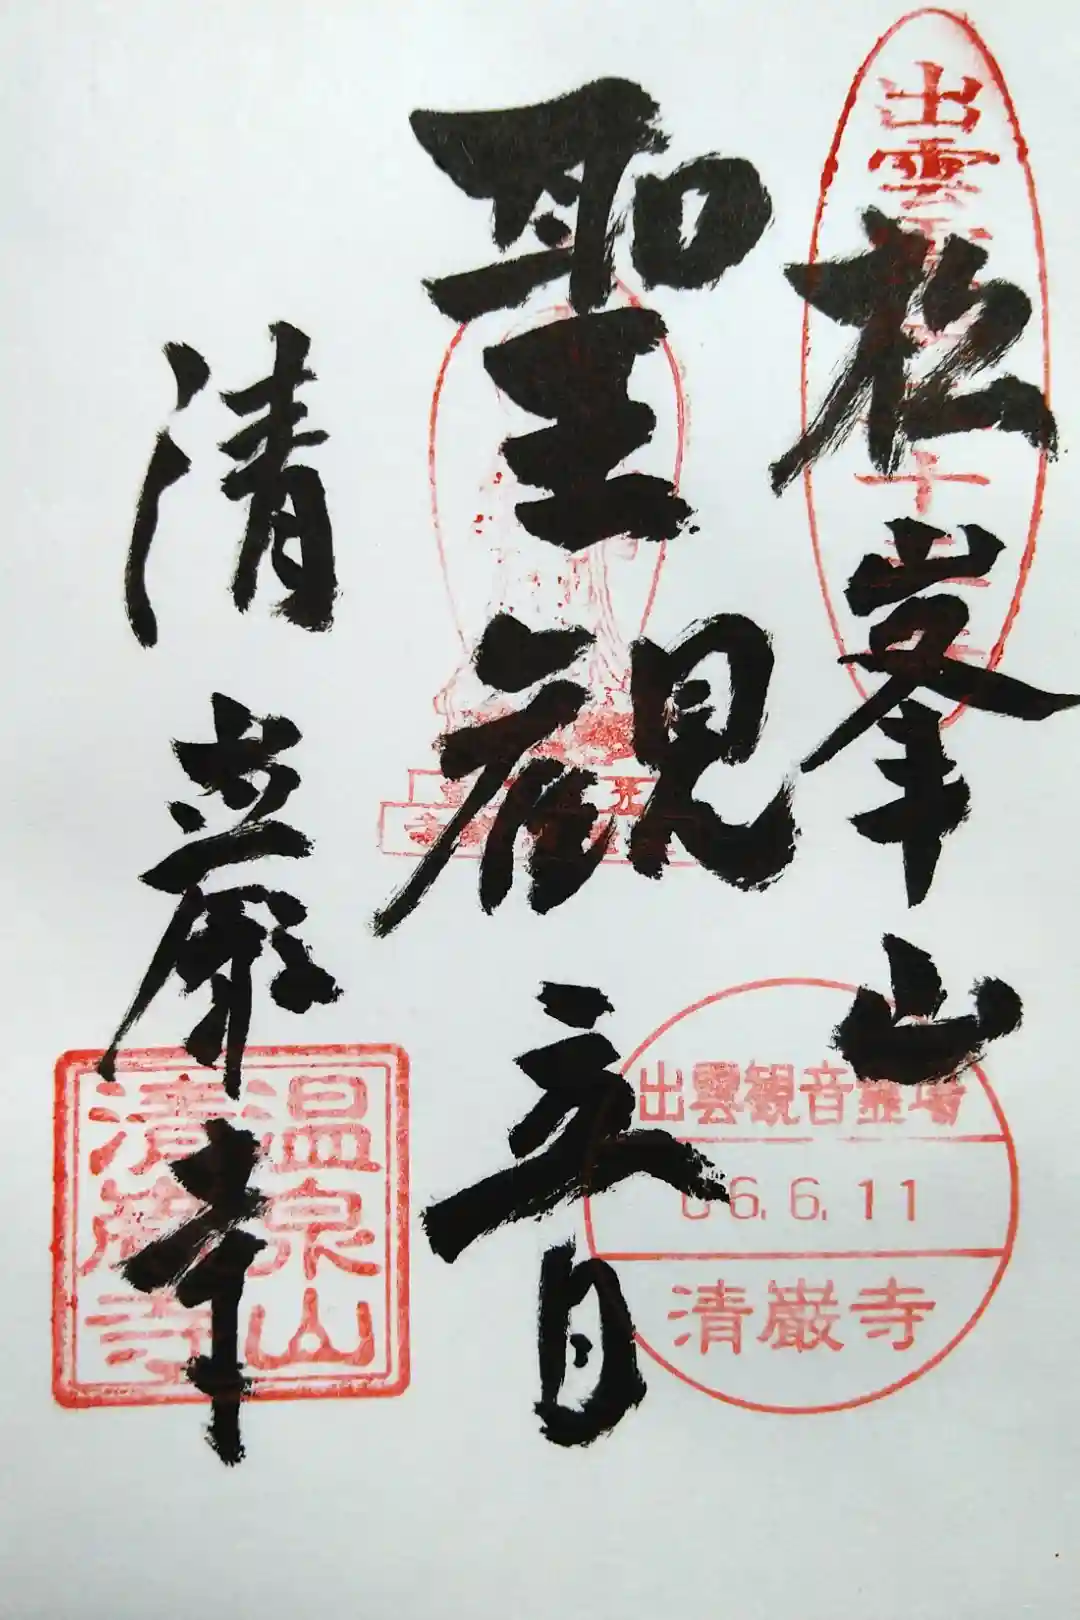 松峯山
聖観音
清巌寺
出雲
十
出雲観音霊場
6.6.11
清巌寺
温泉山
清巌寺